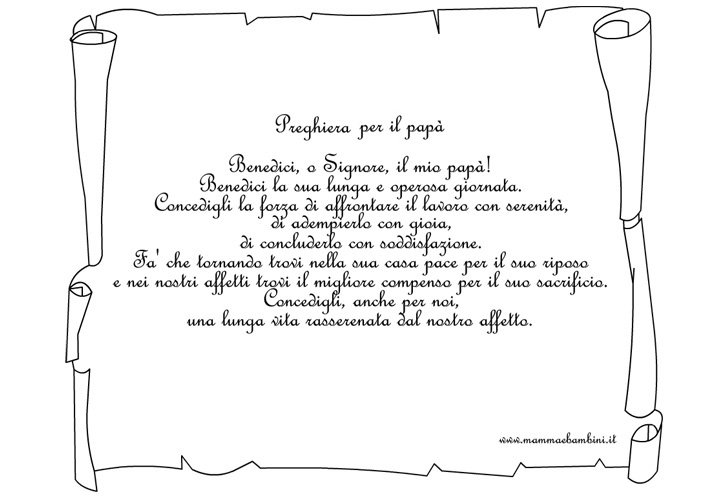 Preghiera per il papà
Benedici, o Signore, il mio papà!
Benedici la sua lunga e operosa giornata.
Concedigli la forza di affrontare il lavoro con serenità,
di adempierlo con gioia,
di concluderlo con soddisfazione.
Fa' che tornando trovi nella sua casa pace per il suo riposo
e nei nostri affetti trovi il migliore compenso per il suo sacrificio.
Concedigli, anche per noi,
una lunga vita rasserenata dal nostro affetto.
www.mammaebambini.it